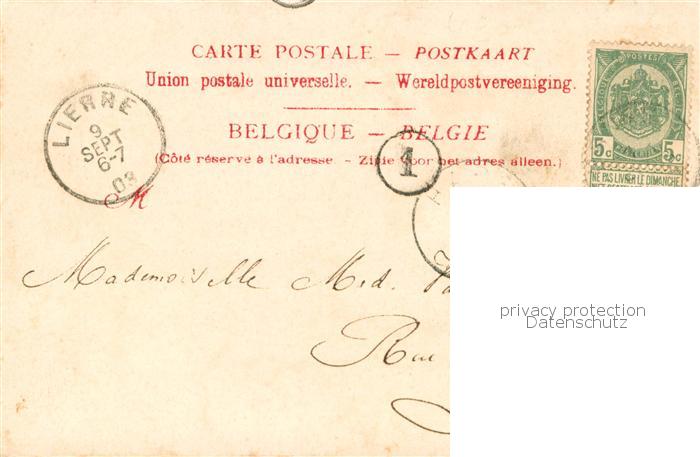 CARTE POSTALE — POSTKAART
Union postale universelle. — Wereldpostvereeniging.
BELGIQUE — BELGIE
(Côté réservé à l'adresse. - Zijde voor het adres alleen.)
LIERRE
9 SEPT
6-7
03
1
M
POSTES
5c 5c
NE PAS LIVRER LE DIMANCHE
Mademoiselle Med.
Rue
privacy protection
Datenschutz